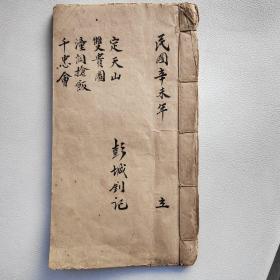 民國辛未年
立
彭城釗記
定天山
雙貴圖
潼洞搶飯
千忠會